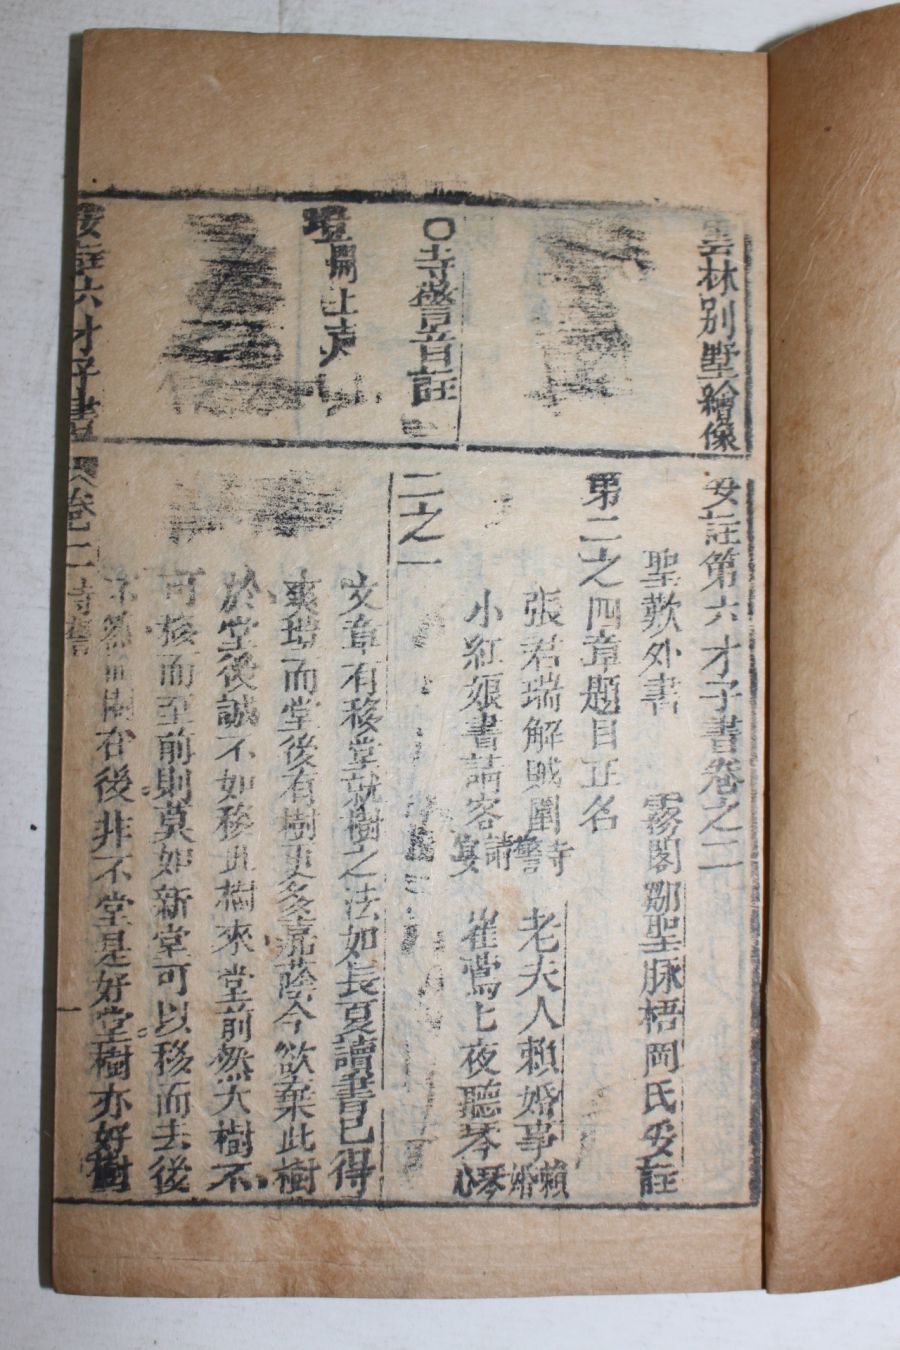 雲林別墅繪像
妥註第六才子書卷之二
聖歎外書　霧閣鄒聖脉梧岡氏妥註
第二之四章題目正名
張君瑞解賊圍 寺警　老夫人賴婚事 賴婚
小紅娘書請客 請宴　崔鶯鶯夜聽琴 琴心
○寺警音註
二之一
文章有移堂就樹之法如長夏讀書已得
爽塏而堂後有樹更多嘉蔭今欲棄此樹
於堂後誠不如移此樹來堂前然大樹不
可移而至前則莫如新堂可以移而去後
不然而樹在後非不堂是好堂樹亦好樹
妥註六才子書　卷二 寺警